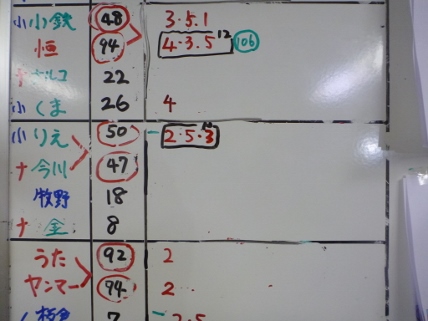 小 小鉄 48 3・5・1
恒 94 4・3・5 12 106
ナルコ 22
小 くま 26 4
小 りえ 50 2・5・3
ナ 今川 47
牧野 18
ナ 金 8
うた 92 2
ヤンマー 94 2
7 2・5